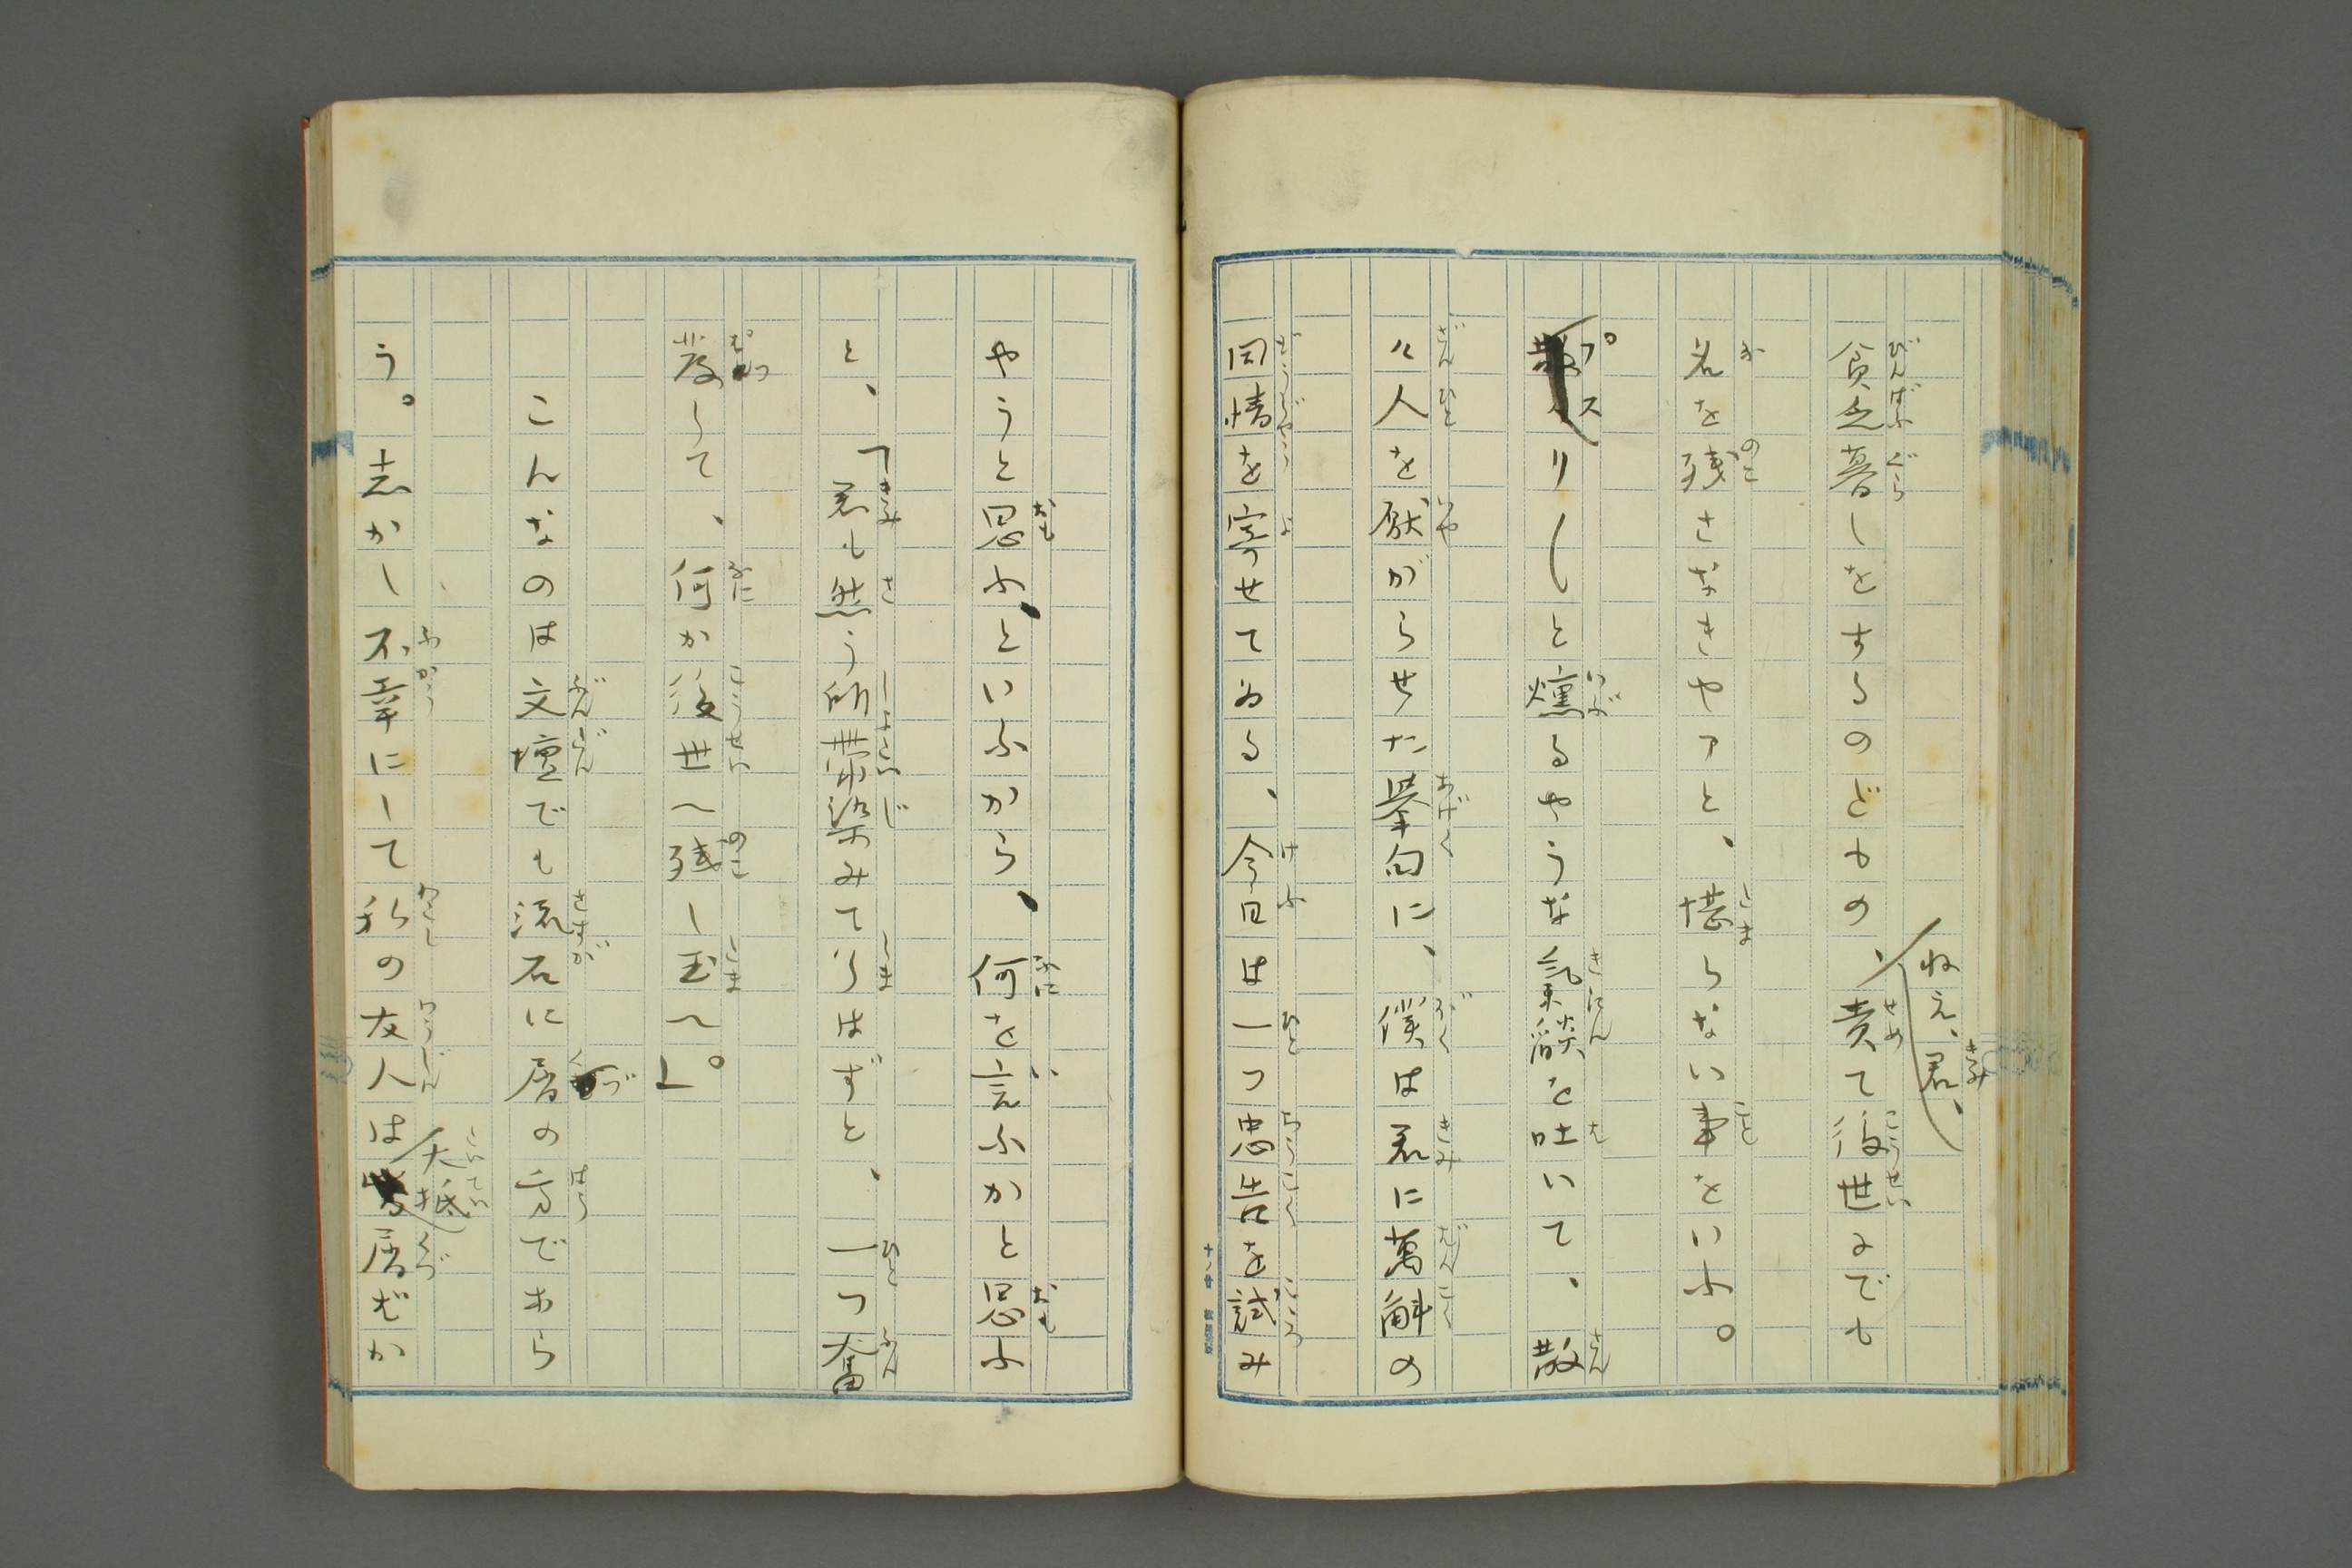 貧乏暮しをするのだもの、ねえ、君、責て後世までも
名を残さなきやアと、堪らない事をいふ。
プスリ〳〵と燻るやうな氣燄を吐いて、散
々人を厭がらせた擧句に、僕は君に萬斛の
同情を寄せてゐる、今日は一つ忠告を試み
やうと思ふ、といふから、何を言ふかと思ふ
と、「君も然う所帶染みて了はずと、一つ奮
發して、何か後世へ残し玉へ」。
こんなのは文壇でも流石に屑の方であら
う。志かし不幸にして私の友人は大抵屑ばか